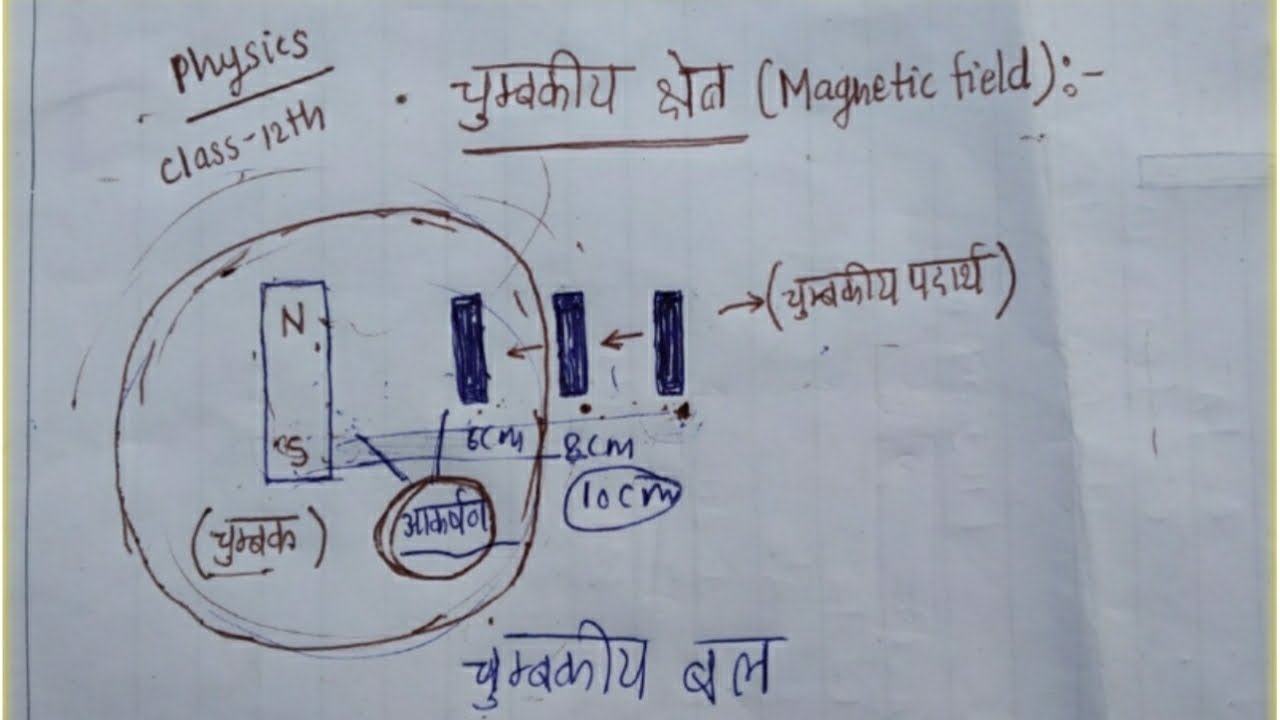 Physics
Class-12th
चुम्बकीय क्षेत्र (Magnetic field):-
N
S
→(चुम्बकीय पदार्थ)
6cm
8cm
10cm
(चुम्बक)
आकर्षण
चुम्बकीय बल